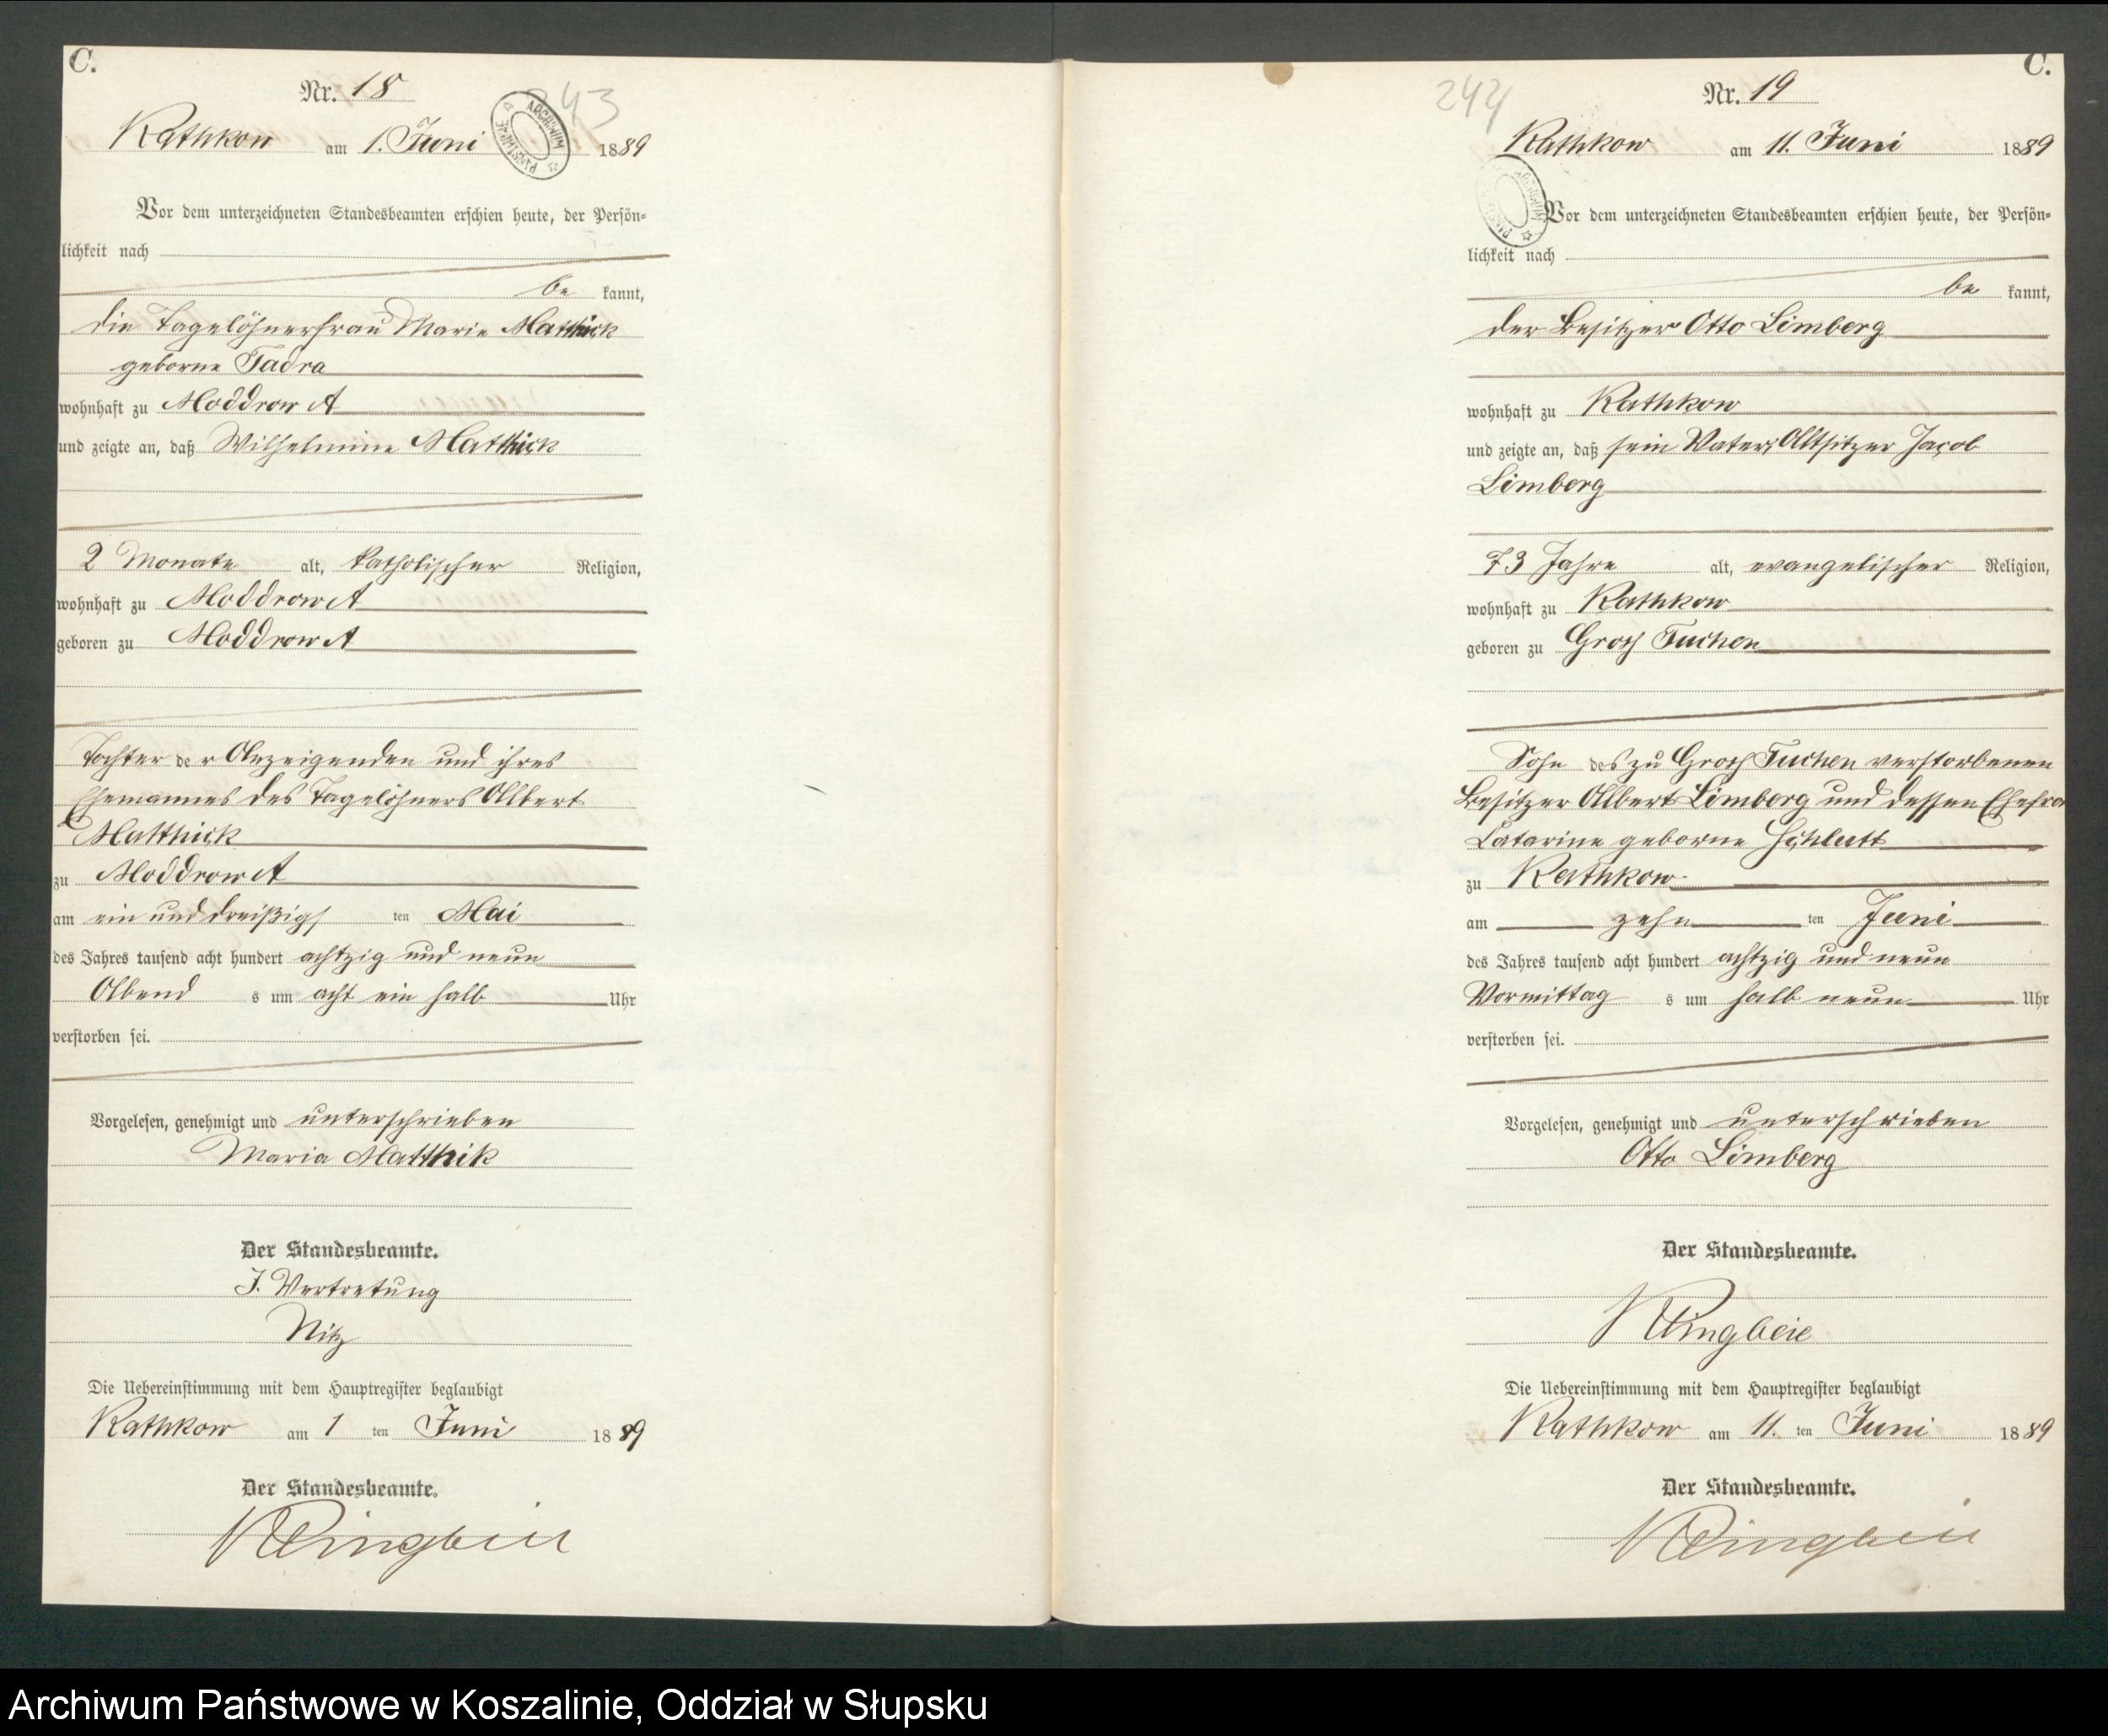 C.
Nr. 18
243
Rathkow am 1. Juni 1889
ARCHIWUM PAŃSTWOWE
Vor dem unterzeichneten Standesbeamten erschien heute, der Persön-
lichkeit nach
be kannt,
die Tagelöhnerfrau Marie Matthick
geborne Tadra
wohnhaft zu Moddrow A
und zeigte an, daß Wilhelmine Matthick
2 Monate alt, katholischer Religion,
wohnhaft zu Moddrow A
geboren zu Moddrow A
Tochter der Anzeigenden und ihres
Ehemannes des Tagelöhners Albert
Matthick
zu Moddrow A
am ein und dreißigs ten Mai
des Jahres tausend acht hundert achtzig und neun
Abend s um acht ein halb Uhr
verstorben sei.
Vorgelesen, genehmigt und unterschrieben
Maria Matthik
Der Standesbeamte.
I. Vertretung
Nitz
Die Uebereinstimmung mit dem Hauptregister beglaubigt
Rathkow am 1 ten Juni 1889
Der Standesbeamte.
Klingbeil
C.
Nr. 19
244
Rathkow am 11. Juni 1889
Vor dem unterzeichneten Standesbeamten erschien heute, der Persön-
lichkeit nach
be kannt,
der Besitzer Otto Limberg
wohnhaft zu Rathkow
und zeigte an, daß sein Vater, Altsitzer Jacob
Limberg
73 Jahre alt, evangelischer Religion,
wohnhaft zu Rathkow
geboren zu Groß Tuchen
Sohn des zu Groß Tuchen verstorbenen
Besitzer Albert Limberg und dessen Ehefra
Catarine geborne Schlutt
zu Rathkow
am zehn ten Juni
des Jahres tausend acht hundert achtzig und neun
Vormittag s um halb neun Uhr
verstorben sei.
Vorgelesen, genehmigt und unterschrieben
Otto Limberg
Der Standesbeamte.
Klingbeil
Die Uebereinstimmung mit dem Hauptregister beglaubigt
Rathkow am 11. ten Juni 1889
Der Standesbeamte.
Klingbeil
Archiwum Państwowe w Koszalinie, Oddział w Słupsku